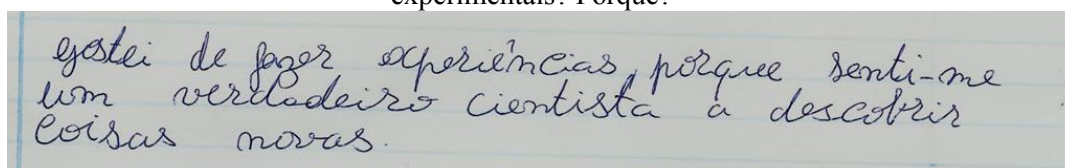 experimentais? Porque?
gostei de fazer experiências, porque senti-me
um verdadeiro cientista a descobrir
coisas novas.